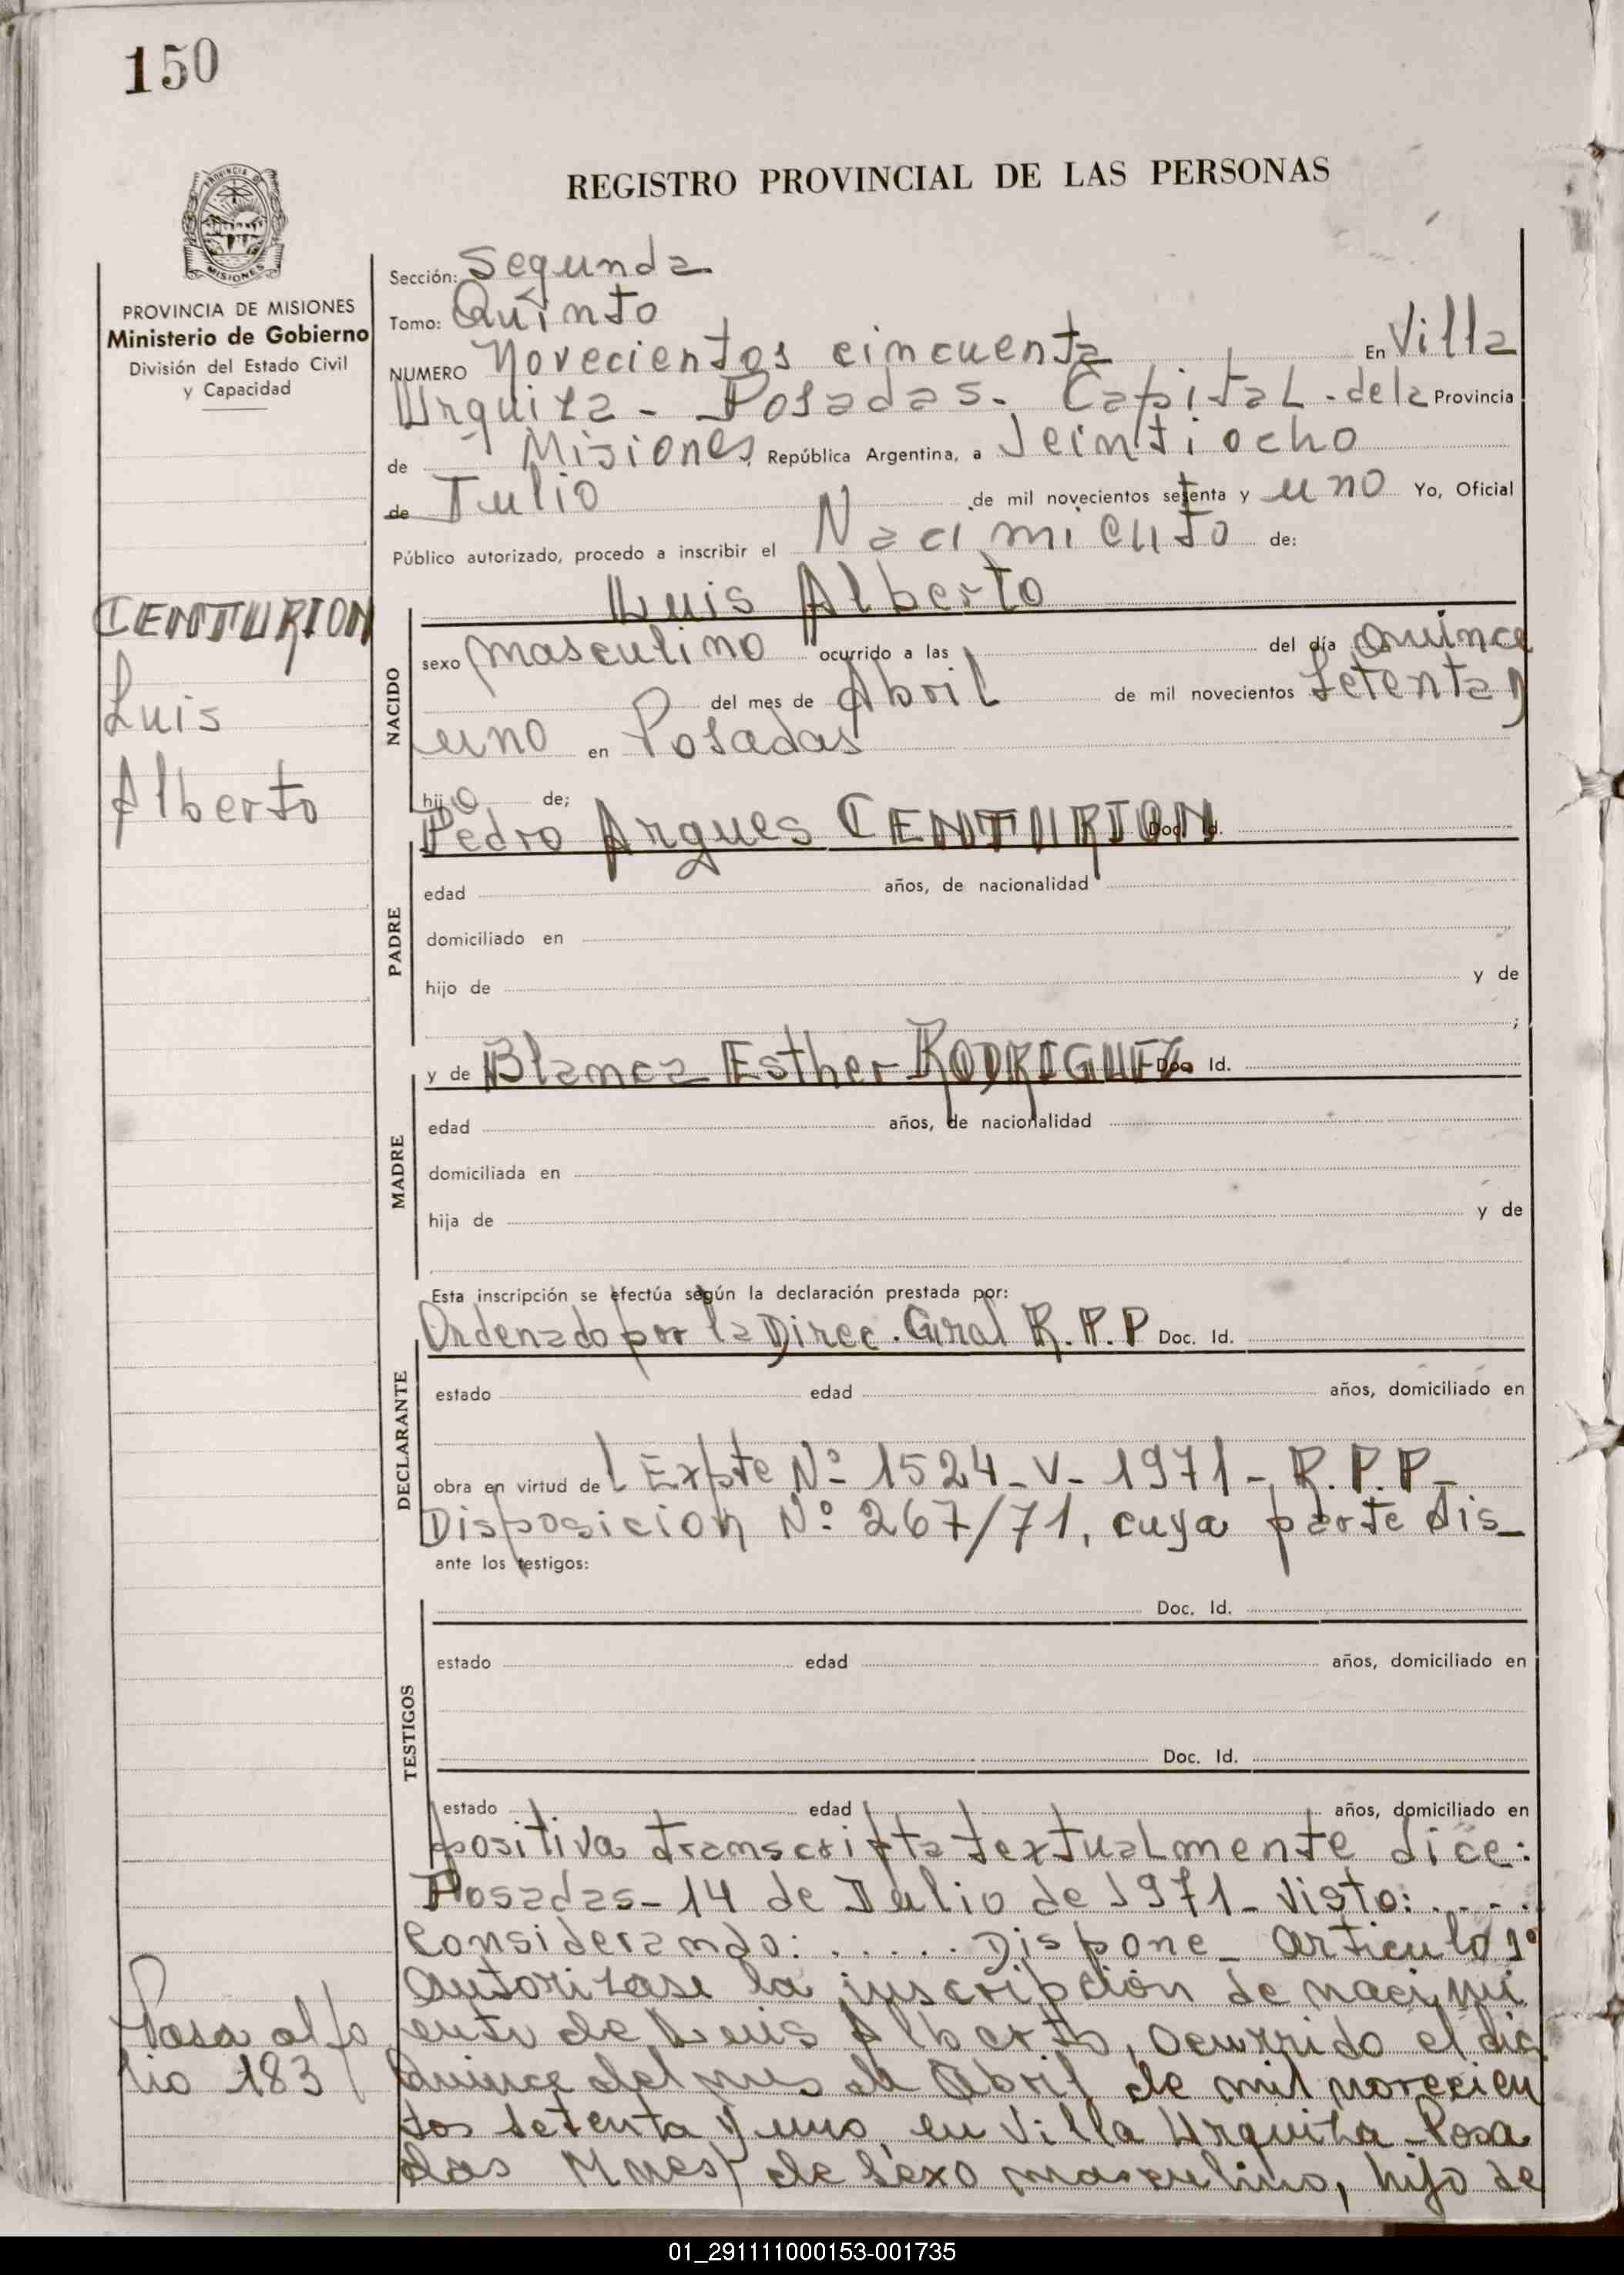 150
REGISTRO PROVINCIAL DE LAS PERSONAS
PROVINCIA DE MISIONES
Ministerio de Gobierno
División del Estado Civil
y Capacidad
Sección: Segunda
Tomo: Quinto
NUMERO Novecientos cincuenta En Villa
Urquiza - Posadas. Capital - de la Provincia
de Misiones, República Argentina, a Veintiocho
de Julio de mil novecientos setenta y uno Yo, Oficial
Público autorizado, procedo a inscribir el Nacimiento de:
Luis Alberto
CENTURION
Luis
Alberto
NACIDO
sexo masculino ocurrido a las del día Quince
del mes de Abril de mil novecientos setenta y
uno en Posadas
hijo de;
Pedro Argues CENTURION Doc. Id.
PADRE
edad años, de nacionalidad
domiciliado en
hijo de y de
;
y de Blanca Esther RODRIGUEZ Doc. Id.
MADRE
edad años, de nacionalidad
domiciliada en
hija de y de
Esta inscripción se efectúa según la declaración prestada por:
Ordenado por la Direc. Gral R.P.P Doc. Id.
DECLARANTE
estado edad años, domiciliado en
obra en virtud del Expte Nº 1524-V-1971-R.P.P-
Disposicion Nº 267/71, cuya parte dis-
ante los testigos:
Doc. Id.
TESTIGOS
estado edad años, domiciliado en
Doc. Id.
estado edad años, domiciliado en
positiva transcripta textualmente dice:
Posadas-14 de Julio de 1971-Visto:.....
Considerando:......Dispone-Articulo 1º
Autorizase la inscripción de nacimi
ento de Luis Alberto, ocurrido el dia
Quince del mes de Abril de mil novecien
tos setenta y uno, en Villa Urquiza-Posa
das Mnes) de Sexo masculino, hijo de
Pasa al fo
lio 183
01_291111000153-001735